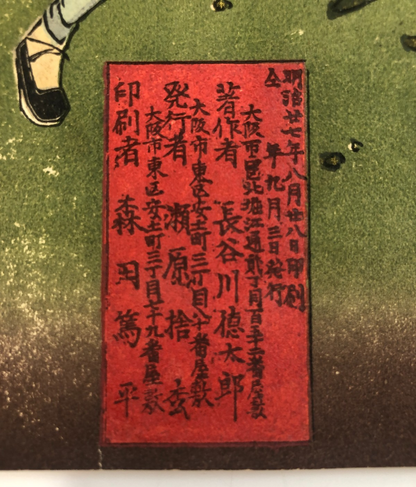 明治廿七年八月廿八日印刷
仝 年九月三日発行
大阪市西區北堀江通弐丁目百五十二番屋敷
著作者 長谷川徳太郎
大阪市東区安土町三丁目八十番屋敷
発行者 瀬原捨松
大阪市東区安土町三丁目廿九番屋敷
印刷者 森田篤平